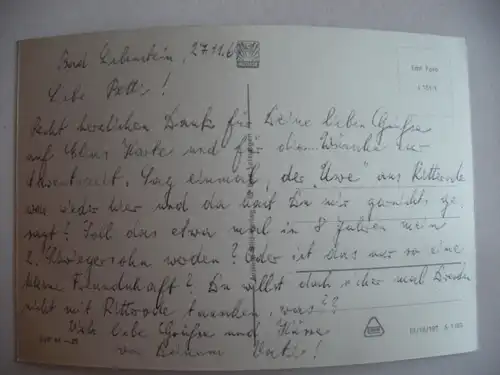 Bad Liebenstein, 27.11.6
Liebe Betti!
Recht herzlichen Dank für Deine lieben Grüße
auf Elkes Karte und für die Wünsche zur
Adventszeit. Sag einmal, der "Uwe" aus Ritterode
war wieder hier und da hast Du mir garnichts ge-
sagt? Soll das etwa mal in 8 Jahren mein
2. Schwiegersohn werden? Oder ist das nur so eine
kleine Freundschaft? Du willst doch sicher mal
nicht mit Ritterode tauschen, was??
Viele liebe Grüße und Küsse
von Deinem Vati!